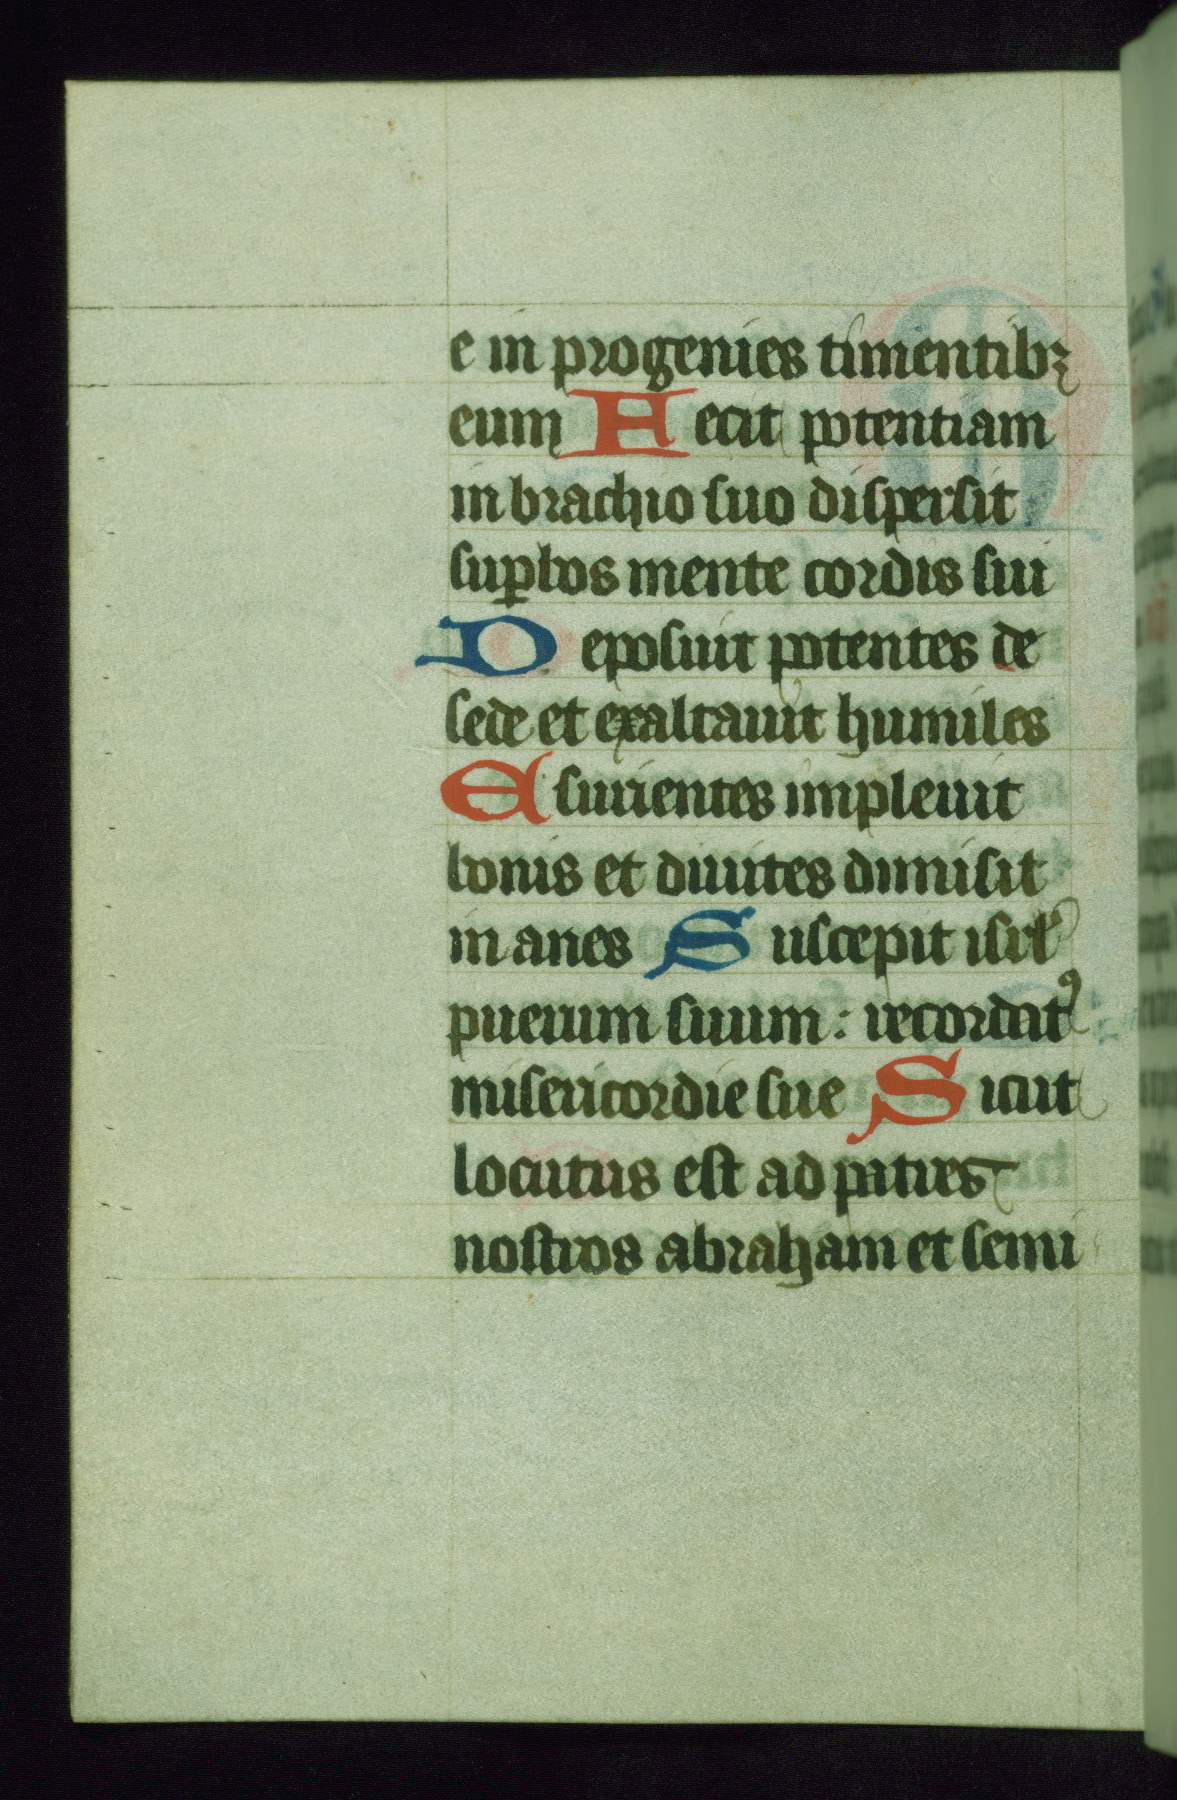 e in progenies timentibꝫ
eum Fecit potentiam
in brachio suo dispersit
suꝑbos mente cordis sui
Deposuit potentes de
sede et exaltauit humiles
Esurientes impleuit
bonis et diuites dimisit
in anes Suscepit isrl
puerum suum : recordatꝰ
misericordie sue Sicut
locutus est ad patres
nostros abraham et semi